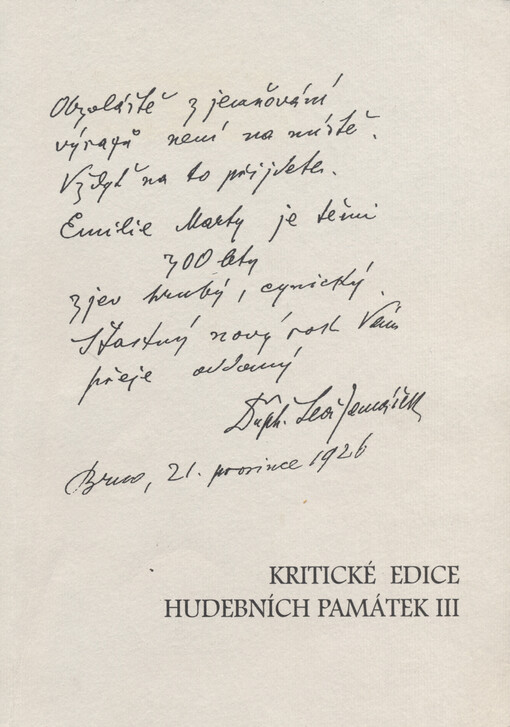 Obzvláště zjemňování
výrazů není na místě.
Vždyť na to přijdete.
Emilie Marty je těmi
300 lety
zjev hrubý, cynický.
Šťastný nový rok Vám
přeje oddaný
Drph. Leoš Janáček
Brno, 21. prosince 1926
KRITICKÉ EDICE
HUDEBNÍCH PAMÁTEK III